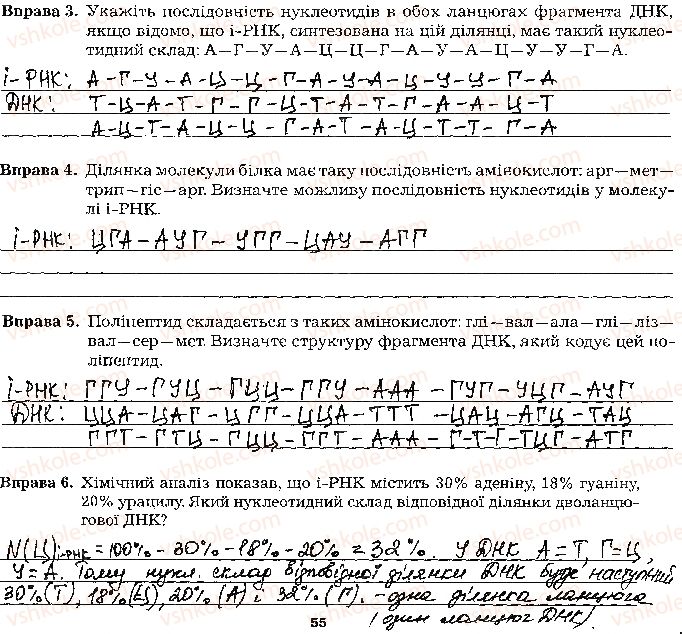 Вправа 3. Укажіть послідовність нуклеотидів в обох ланцюгах фрагмента ДНК,
якщо відомо, що і-РНК, синтезована на цій ділянці, має такий нуклео-
тидний склад: А—Г—У—А—Ц—Ц—Г—А—У—А—Ц—У—У—Г—А.
і-РНК: А-Г-У-А-Ц-Ц-Г-А-У-А-Ц-У-У-Г-А
ДНК: Т-Ц-А-Т-Г-Г-Ц-Т-А-Т-Г-А-А-Ц-Т
А-Ц-Т-А-Ц-Ц-Г-А-Т-А-Ц-Т-Т-Г-А
Вправа 4. Ділянка молекули білка має таку послідовність амінокислот: арг—мет—
трип—гіс—арг. Визначте можливу послідовність нуклеотидів у молеку-
лі і-РНК.
і-РНК: ЦГА-АУГ-УГГ-ЦАУ-АГГ
Вправа 5. Поліпептид складається з таких амінокислот: глі—вал—ала—глі—ліз—
вал—сер—мет. Визначте структуру фрагмента ДНК, який кодує цей по-
ліпептид.
і-РНК: ГГУ-ГУЦ-ГЦЦ-ГГУ-ААА-ГУГ-УЦГ-АУГ
ДНК: ЦЦА-ЦАГ-ЦГГ-ЦЦА-ТТТ-ЦАЦ-АГЦ-ТАЦ
ГГТ-ГТЦ-ГЦЦ-ГГТ-ААА-Г-Т-Г-ТЦГ-АТГ
Вправа 6. Хімічний аналіз показав, що і-РНК містить 30% аденіну, 18% гуаніну,
20% урацилу. Який нуклеотидний склад відповідної ділянки дволанцю-
гової ДНК?
N(Ц)і-РНК = 100%-30%-18%-20% = 32%. У ДНК А=Т, Г=Ц,
У=А. Тому нукл. склад відповідної ділянки ДНК буде наступний
30%(Т), 18%(Ц), 20%(А) і 32%(Г). - одна ділянка ланцюга
(один ланцюг ДНК)
55
vshkole.com